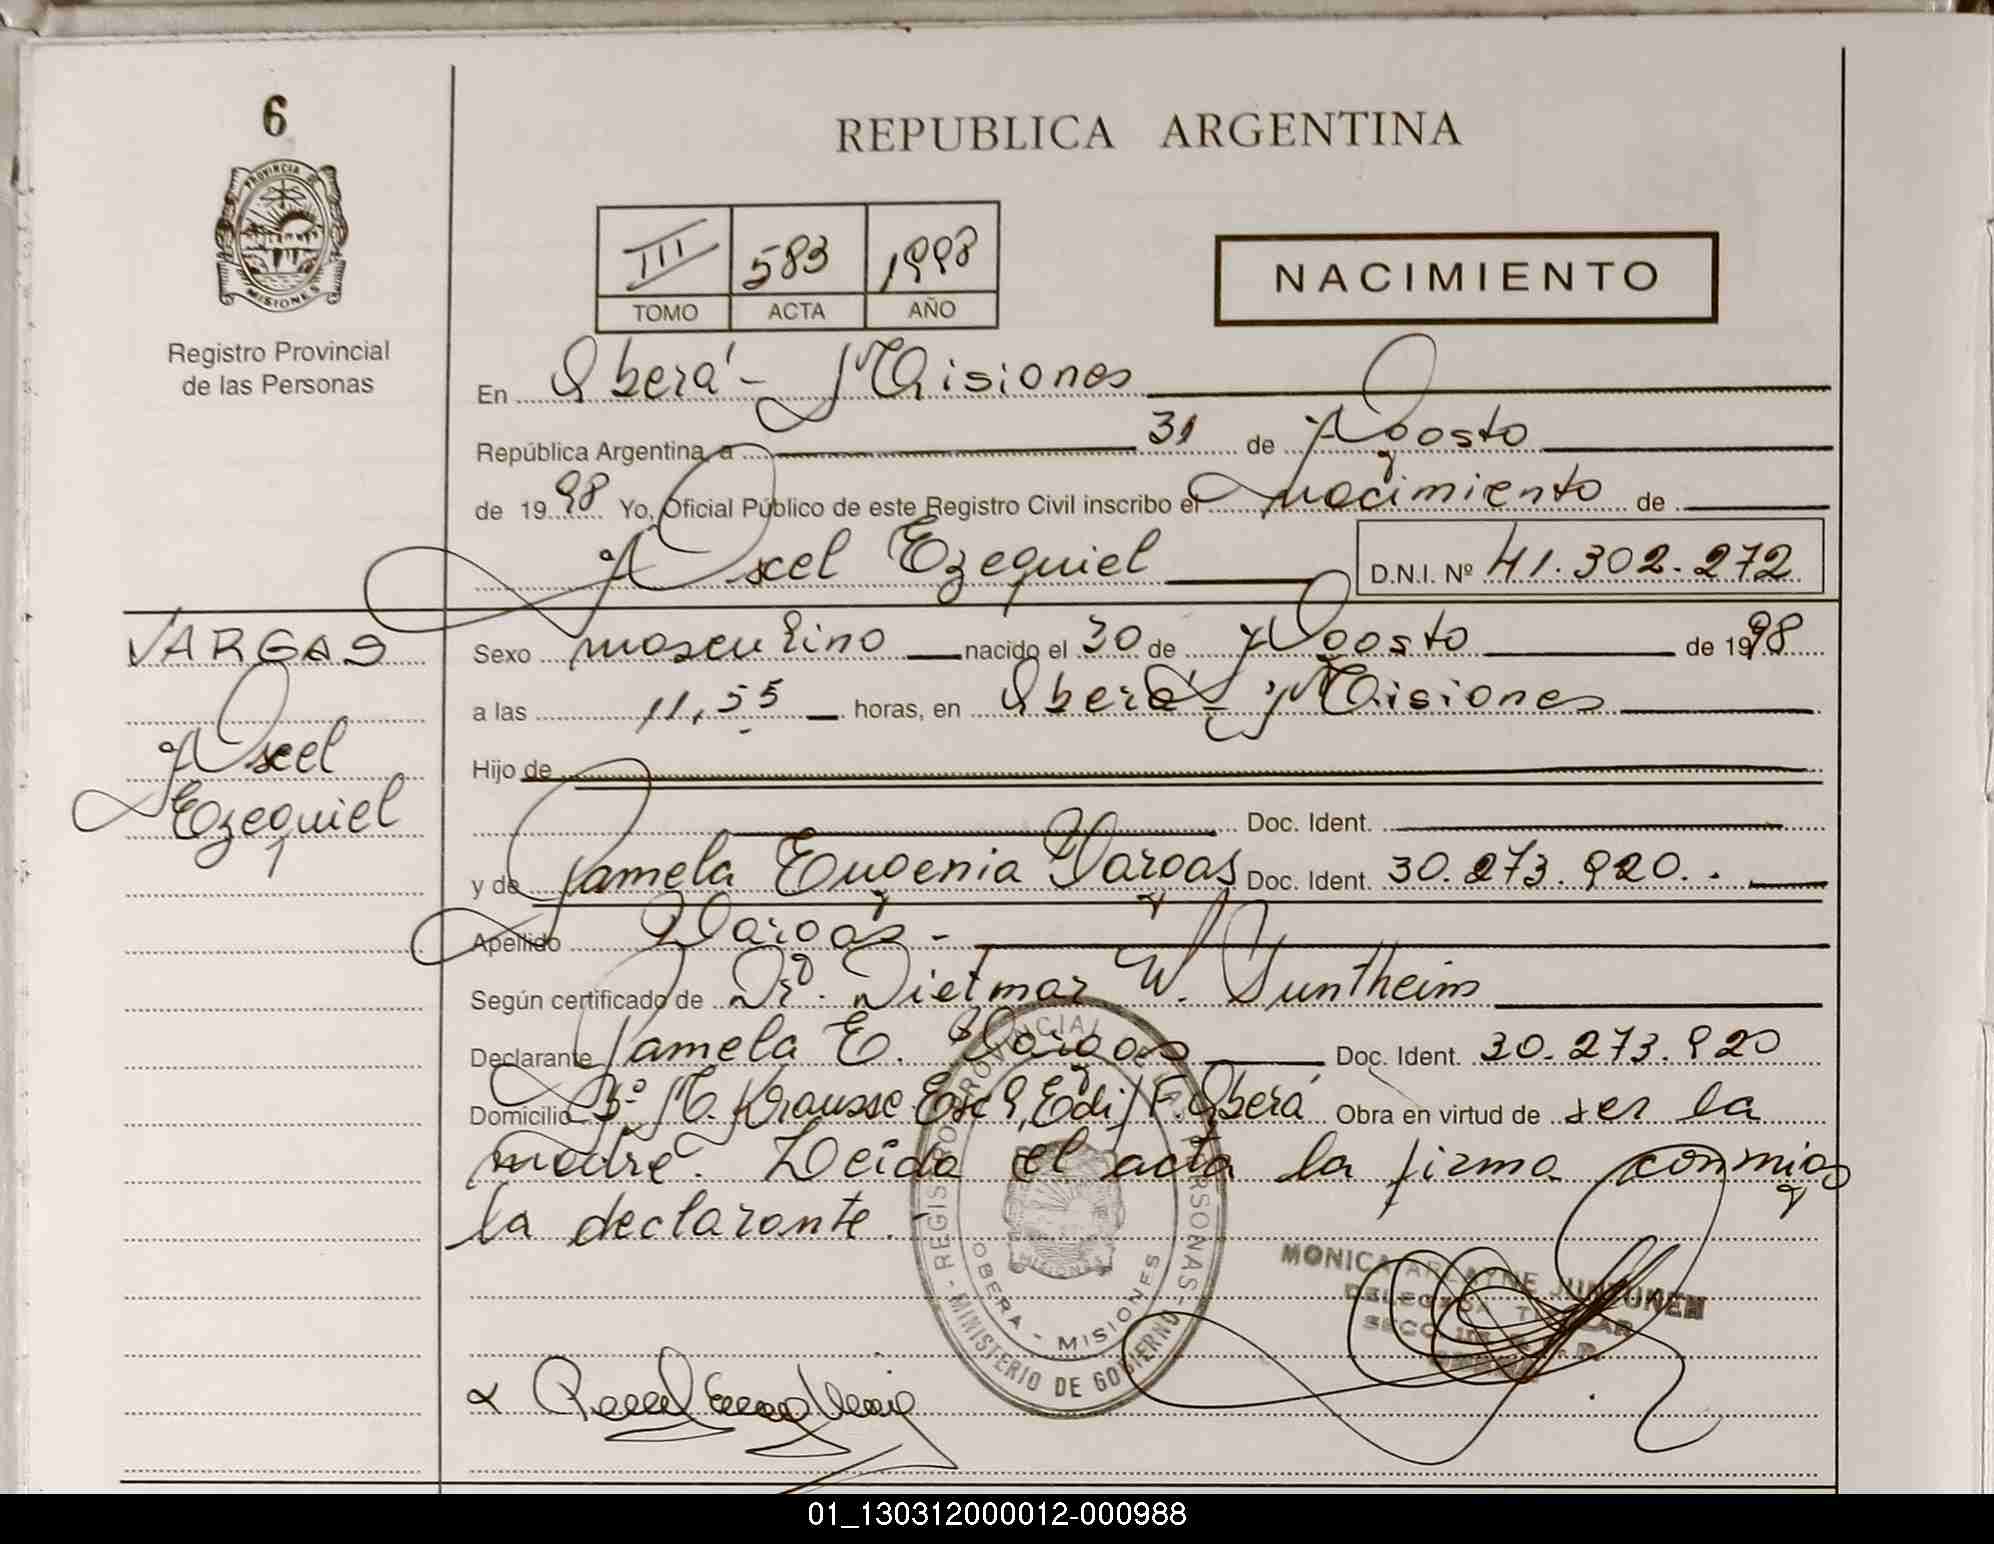 6
REPUBLICA ARGENTINA
PROVINCIA DE
MISIONES
Registro Provincial
de las Personas
III 583 1998
TOMO ACTA AÑO
NACIMIENTO
En Oberá - Misiones
República Argentina, a 31 de Agosto
de 1998 Yo, Oficial Público de este Registro Civil inscribo el nacimiento de
Axel Ezequiel D.N.I. Nº 41.302.272
VARGAS
Axel
Ezequiel
Sexo masculino nacido el 30 de Agosto de 1998
a las 11,55 horas, en Oberá - Misiones
Hijo de
Doc. Ident.
y de Pamela Eugenia Vargas Doc. Ident. 30.273.920.
Apellido Vargas -
Según certificado de Dr. Dietmar W. Suntheim
Declarante Pamela E. Vargas Doc. Ident. 30.273.920
Domicilio Bº M. Krausse Esc 9, Edi/F. Oberá Obra en virtud de ser la
madre. Leída el acta la firma conmigo
la declarante. -
REGISTRO PROVINCIAL DE LAS PERSONAS
OBERA - MISIONES
MINISTERIO DE GOBIERNO
MISIONES
MONICA ARLAYNE
DELEGADA TITULAR
01_130312000012-000988